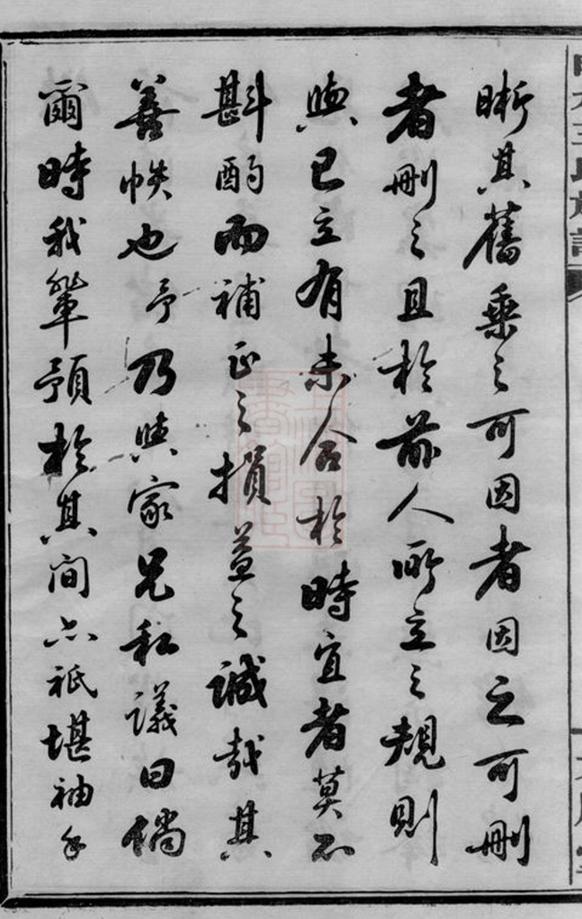 晰其舊乘之可因者因之可刪
者刪之且於前人所立之規則
與已立有未合於時宜者莫不
斟酌而補正之損益之誠哉其
善帙也予乃與家兄私議曰倘
爾時我輩預於其間亦祇堪袖手